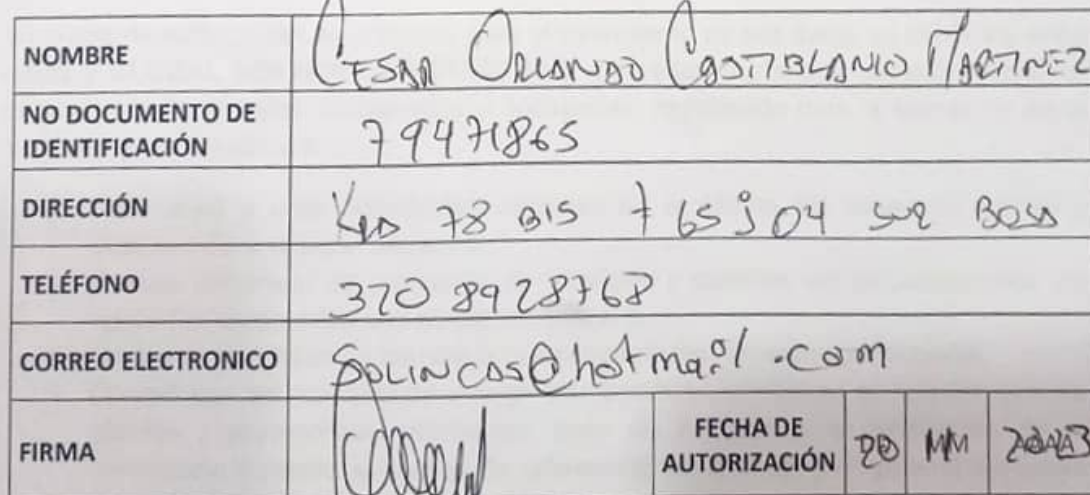 NOMBRE CESAR ORLANDO CASTIBLANCO MARTINEZ
NO DOCUMENTO DE
IDENTIFICACIÓN 79471865
DIRECCIÓN KRA 78 BIS # 65 J 04 SUR BOSA
TELÉFONO 320 8928768
CORREO ELECTRONICO SOLINCAS@hotmail.com
FIRMA
FECHA DE
AUTORIZACIÓN DD MM